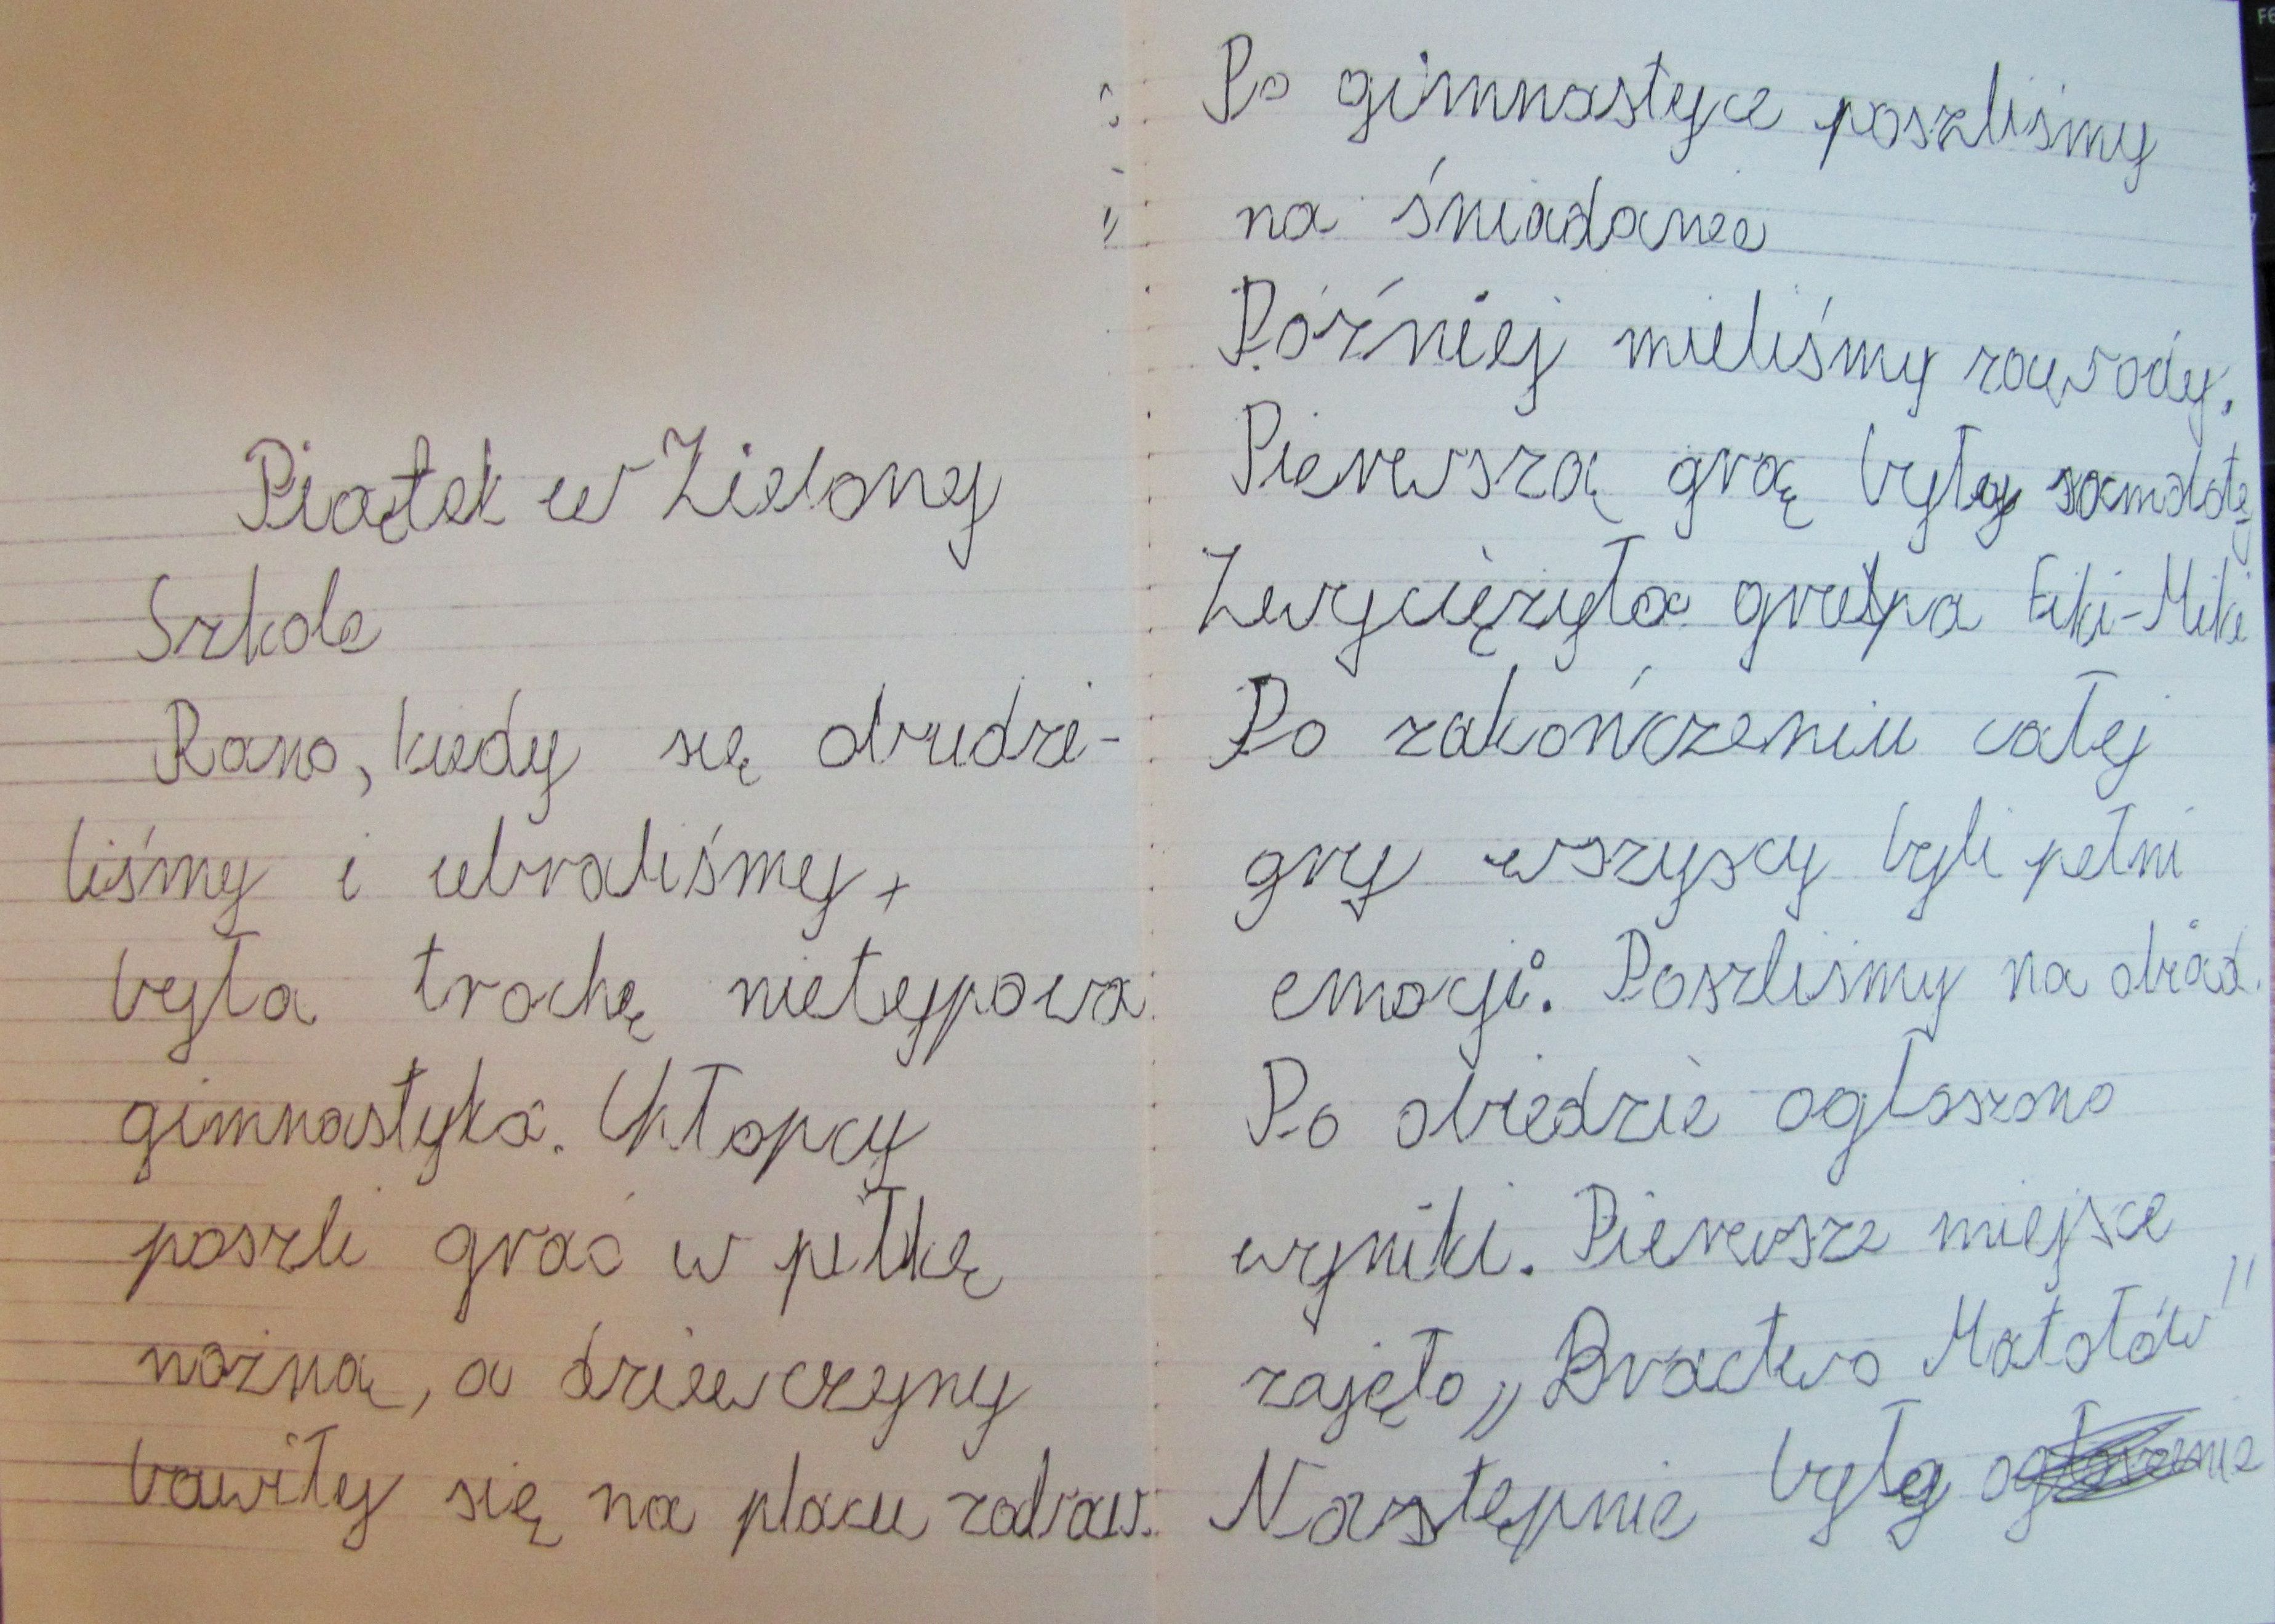 Piątek w Zielony
Szkole
Rano, kiedy się obudzi-
liśmy i ubraliśmy,
była trochę nietypowa
gimnastyka. Chłopcy
poszli grać w piłkę
nożną, a dziewczyny
bawiły się na placu zabaw.
Po gimnastyce poszliśmy
na śniadanie
Póżniej mieliśmy zawody.
Pierwszą grą były samoloty
Zwyciężyła grupa Fiki-Miki
Po zakończeniu całej
gry wszyscy byli pełni
emocji. Poszliśmy na obiad.
Po obiedzie ogłoszono
wyniki. Pierwsze miejsce
zajęło „Bractwo Matołów"
Następnie były